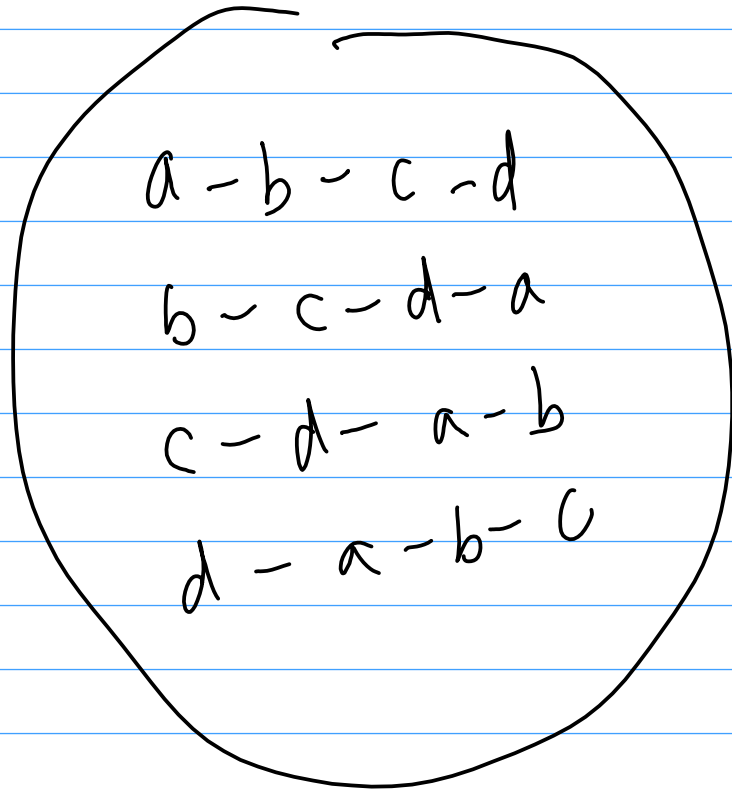 a - b - c - d
b - c - d - a
c - d - a - b
d - a - b - c